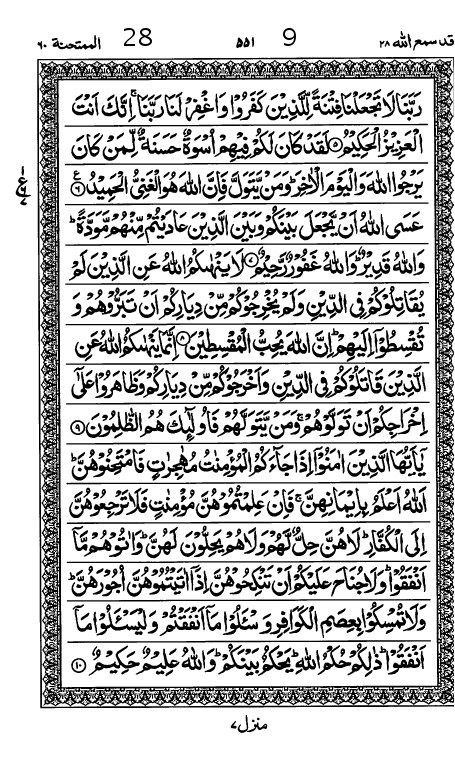 قد سمع الله ۲۸ 9 ۵۵۱ 28 الممتحنة ۶۰
رَبَّنَا لَا تَجْعَلْنَا فِتْنَةً لِّلَّذِيْنَ كَفَرُوْا وَاغْفِرْ لَنَا رَبَّنَا ۚ اِنَّكَ اَنْتَ
الْعَزِيْزُ الْحَكِيْمُ ۵ لَقَدْ كَانَ لَكُمْ فِيْهِمْ اُسْوَةٌ حَسَنَةٌ لِّمَنْ كَانَ
يَرْجُوا اللّٰهَ وَالْيَوْمَ الْاٰخِرَ ؕ وَمَنْ يَّتَوَلَّ فَاِنَّ اللّٰهَ هُوَ الْغَنِيُّ الْحَمِيْدُ ۶ ع
عَسَى اللّٰهُ اَنْ يَّجْعَلَ بَيْنَكُمْ وَبَيْنَ الَّذِيْنَ عَادَيْتُمْ مِّنْهُمْ مَّوَدَّةً ؕ
وَاللّٰهُ قَدِيْرٌ ؕ وَاللّٰهُ غَفُوْرٌ رَّحِيْمٌ ۷ لَا يَنْهٰىكُمُ اللّٰهُ عَنِ الَّذِيْنَ لَمْ
يُقَاتِلُوْكُمْ فِي الدِّيْنِ وَلَمْ يُخْرِجُوْكُمْ مِّنْ دِيَارِكُمْ اَنْ تَبَرُّوْهُمْ وَ
تُقْسِطُوْۤا اِلَيْهِمْ ؕ اِنَّ اللّٰهَ يُحِبُّ الْمُقْسِطِيْنَ ۸ اِنَّمَا يَنْهٰىكُمُ اللّٰهُ عَنِ
الَّذِيْنَ قَاتَلُوْكُمْ فِي الدِّيْنِ وَاَخْرَجُوْكُمْ مِّنْ دِيَارِكُمْ وَظَاهَرُوْا عَلٰۤى
اِخْرَاجِكُمْ اَنْ تَوَلَّوْهُمْ ۚ وَمَنْ يَّتَوَلَّهُمْ فَاُولٰٓئِكَ هُمُ الظّٰلِمُوْنَ ۹
يٰۤاَيُّهَا الَّذِيْنَ اٰمَنُوْۤا اِذَا جَآءَكُمُ الْمُؤْمِنٰتُ مُهٰجِرٰتٍ فَامْتَحِنُوْهُنَّ ؕ
اَللّٰهُ اَعْلَمُ بِاِيْمَانِهِنَّ ۚ فَاِنْ عَلِمْتُمُوْهُنَّ مُؤْمِنٰتٍ فَلَا تَرْجِعُوْهُنَّ
اِلَى الْكُفَّارِ ؕ لَا هُنَّ حِلٌّ لَّهُمْ وَلَا هُمْ يَحِلُّوْنَ لَهُنَّ ؕ وَاٰتُوْهُمْ مَّاۤ
اَنْفَقُوْا ؕ وَلَا جُنَاحَ عَلَيْكُمْ اَنْ تَنْكِحُوْهُنَّ اِذَاۤ اٰتَيْتُمُوْهُنَّ اُجُوْرَهُنَّ ؕ
وَلَا تُمْسِكُوْا بِعِصَمِ الْكَوَافِرِ وَسْـَٔلُوْا مَاۤ اَنْفَقْتُمْ وَلْيَسْـَٔلُوْا مَاۤ
اَنْفَقُوْا ؕ ذٰلِكُمْ حُكْمُ اللّٰهِ ؕ يَحْكُمُ بَيْنَكُمْ ؕ وَاللّٰهُ عَلِيْمٌ حَكِيْمٌ ۱۰
منزل ۷